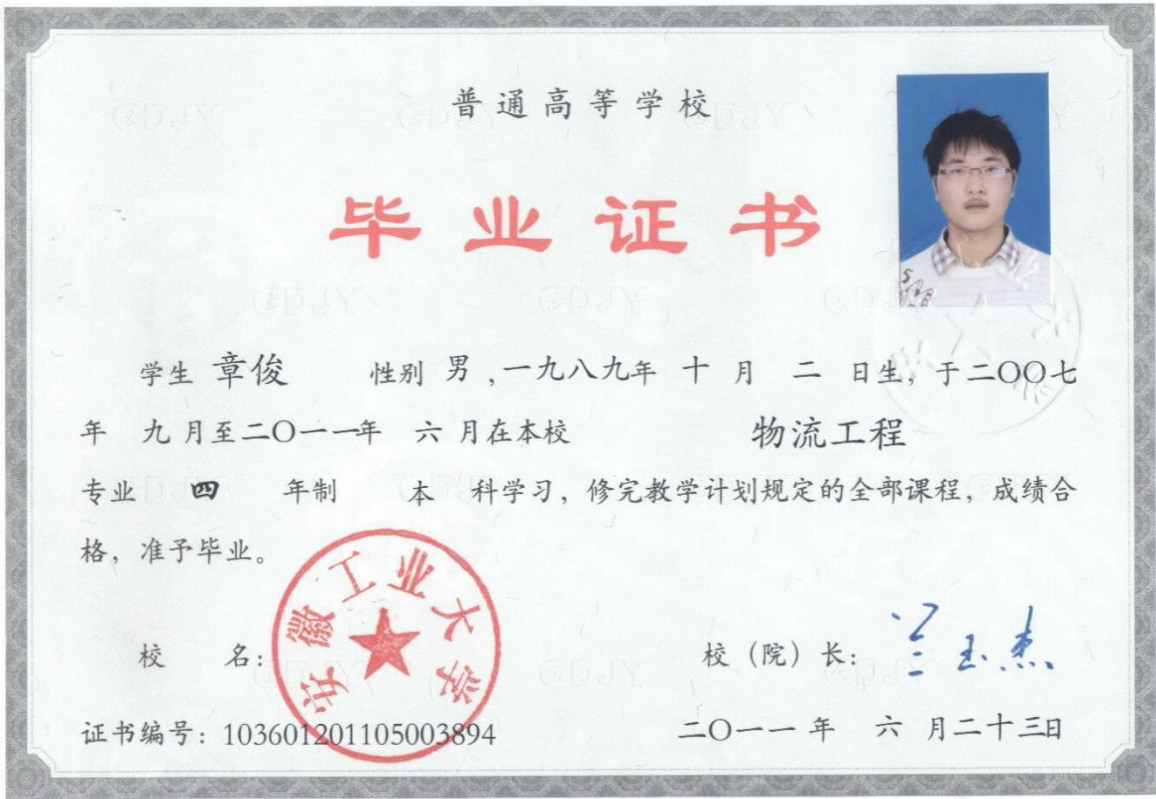 普通高等学校
毕业证书
学生 章俊 性别 男 ,一九八九年 十 月 二 日生, 于二〇〇七
年 九 月至二〇一一年 六 月在本校 物流工程
专业 四 年制 本 科学习, 修完教学计划规定的全部课程, 成绩合
格, 准予毕业。
安徽工业大学
校 名: 校（院）长: 兰玉杰
证书编号: 103601201105003894 二〇一一 年 六 月二十三日